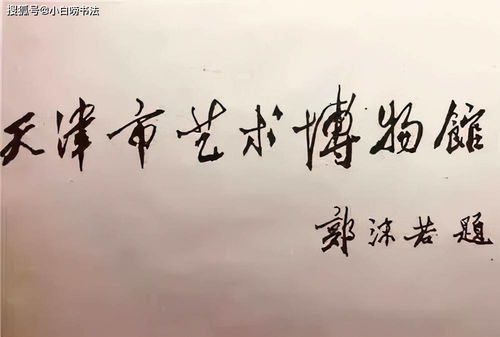 搜狐号@小白唠书法
天津市艺术博物館
郭沫若 题